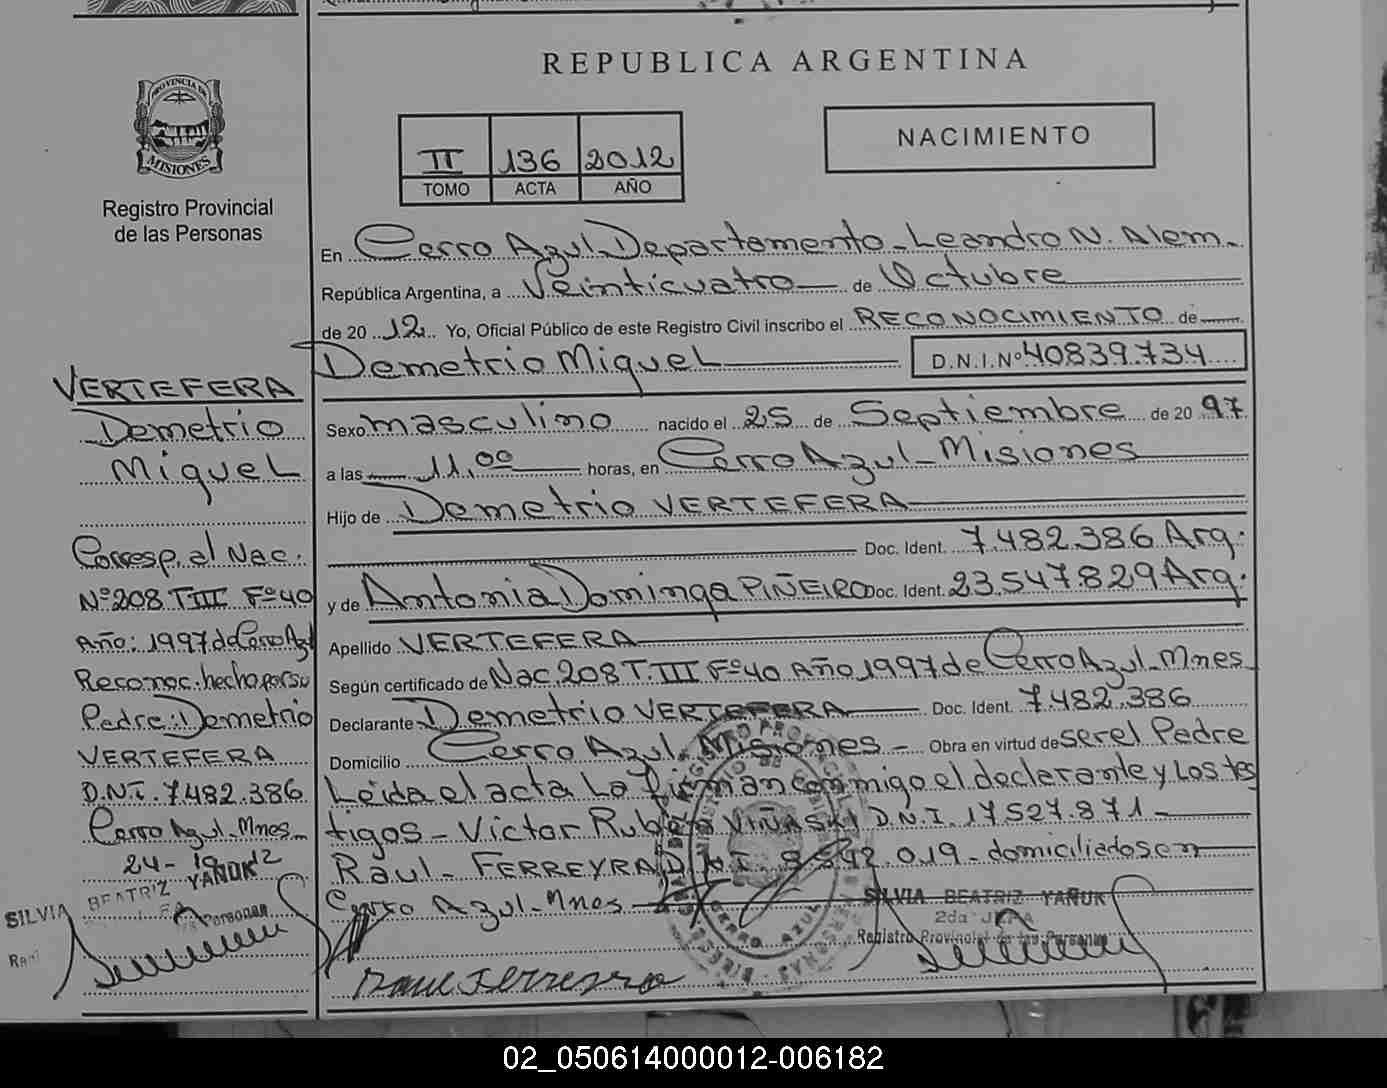 REPUBLICA ARGENTINA
PROVINCIA DE
MISIONES
Registro Provincial
de las Personas
II 136 2012
TOMO ACTA AÑO
NACIMIENTO
En Cerro Azul Departamento - Leandro N. Alem -
República Argentina, a Veinticuatro de Octubre
de 2012 Yo, Oficial Público de este Registro Civil inscribo el RECONOCIMIENTO de
Demetrio Miguel D.N.I. Nº 40839.734
Sexo masculino nacido el 25 de Septiembre de 20 97
a las 11,00 horas, en Cerro Azul - Misiones
Hijo de Demetrio VERTEFERA
Doc. Ident. 7.482.386 Arg.
y de Antonia Dominga PIÑEIRO Doc. Ident. 23.547829 Arg.
Apellido VERTEFERA
Según certificado de Nac. 208 T. III Fº 40 Año 1997 de Cerro Azul - Mnes
Declarante Demetrio VERTEFERA Doc. Ident. 7.482.386
Domicilio Cerro Azul Misiones - Obra en virtud de ser el Padre
Leida el acta La Firman conmigo el declarante y Los tes
tigos - Victor Rubén VIÑASKI D.N.I. 17527.871 -
Raul - FERREYRA D.N.I. 8.542.019 - domiciliados en
Cerro Azul - Mnes -
SILVIA BEATRIZ YAÑUK
2da JEFA
Registro Provincial de las Personas
Raul Ferreyra
CERRO AZUL
VERTEFERA
Demetrio
Miguel
Corresp. al Nac.
Nº 208 T III Fº 40
Año: 1997 de Cerro Azul
Reconoc. hecho por su
Padre: Demetrio
VERTEFERA
D.N.I. 7.482.386
Cerro Azul - Mnes -
24 - 10 - 12
SILVIA BEATRIZ YAÑUK
Personas
02_050614000012-006182